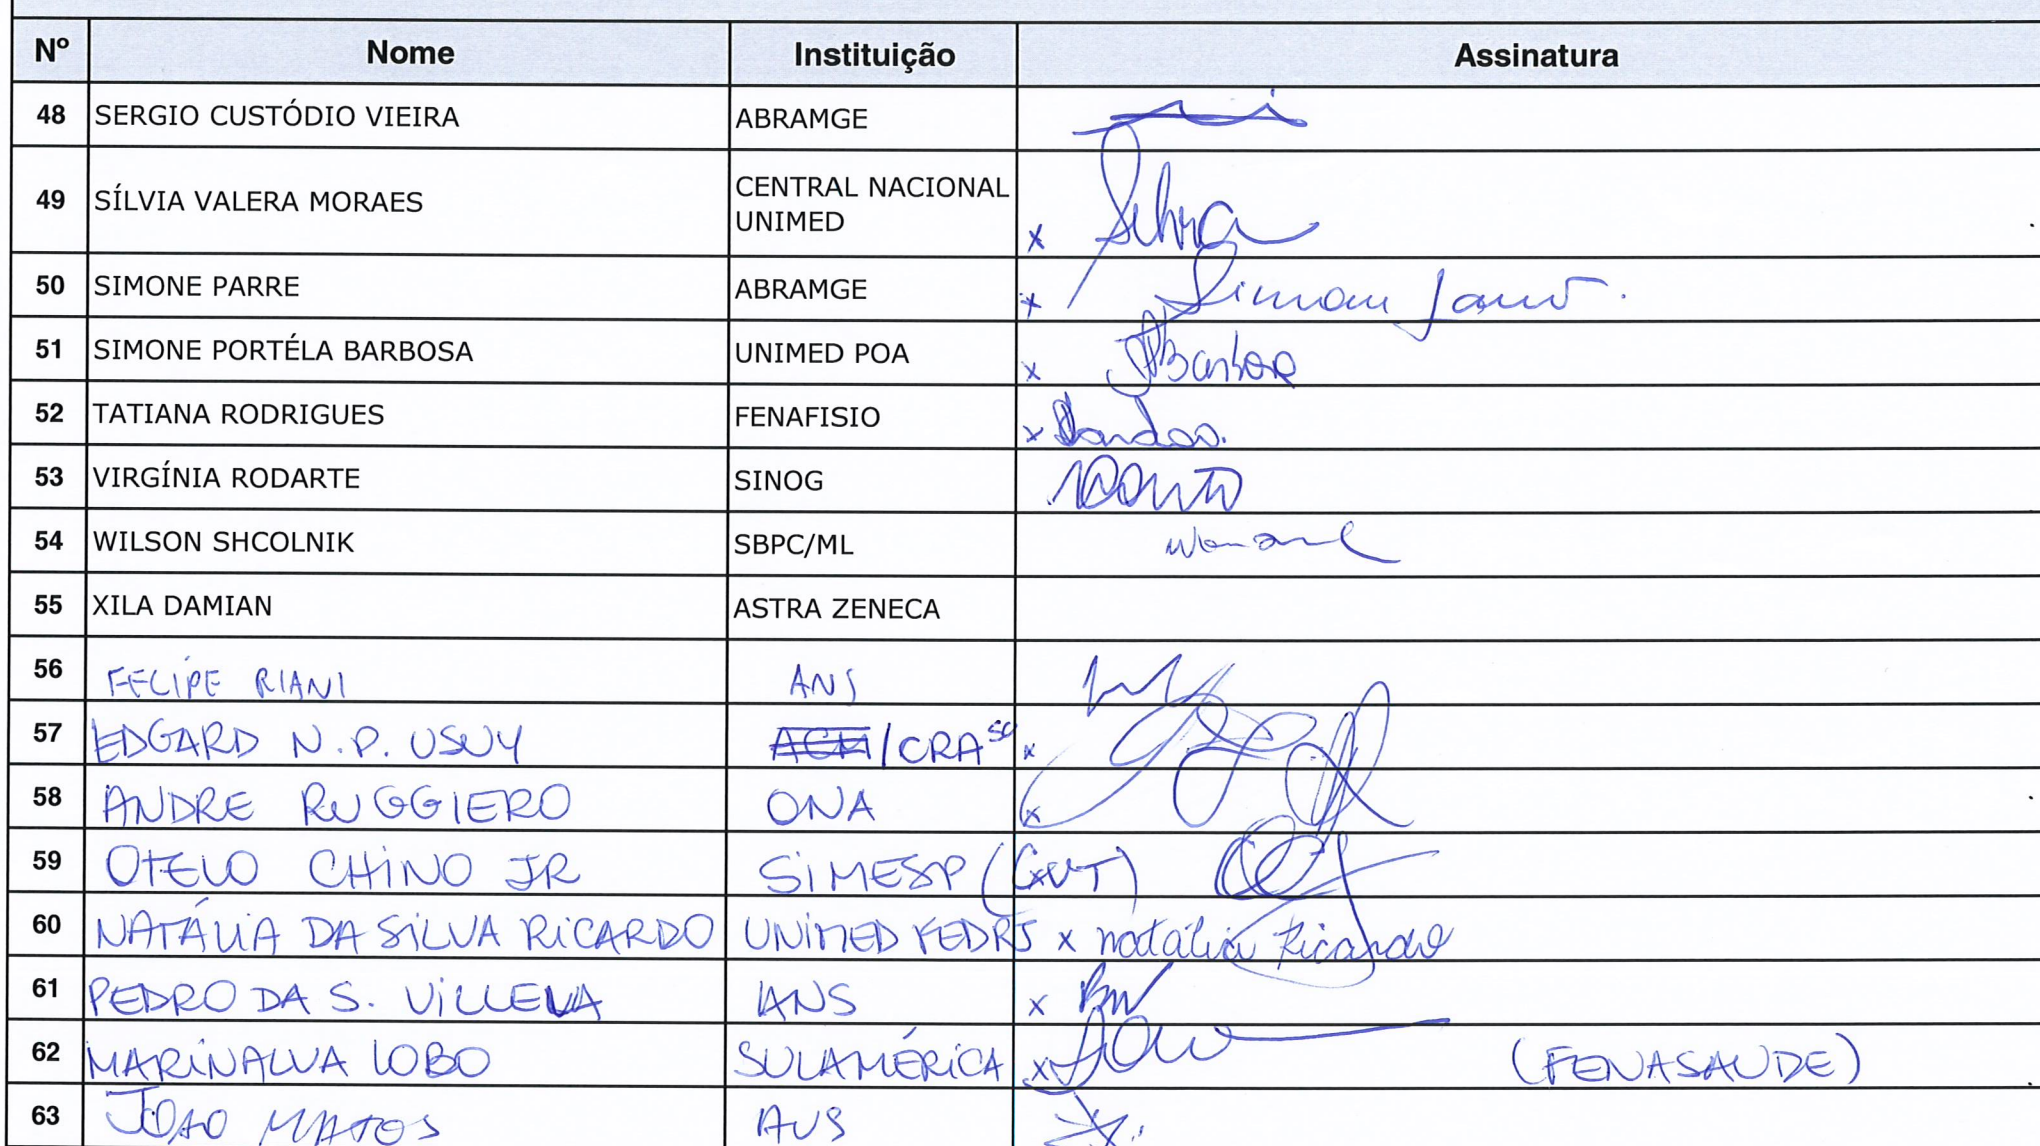 Nº Nome Instituição Assinatura
48 SERGIO CUSTÓDIO VIEIRA ABRAMGE
49 SÍLVIA VALERA MORAES CENTRAL NACIONAL
UNIMED x
50 SIMONE PARRE ABRAMGE x
51 SIMONE PORTÉLA BARBOSA UNIMED POA x
52 TATIANA RODRIGUES FENAFISIO x
53 VIRGÍNIA RODARTE SINOG
54 WILSON SHCOLNIK SBPC/ML
55 XILA DAMIAN ASTRA ZENECA
56 FELIPE RIANI ANS
57 EDGARD N.P. USUY /CRA SC x
58 ANDRE RUGGIERO ONA x
59 OTELO CHINO JR SIMESP
60 NATÁLIA DA SILVA RICARDO UNIMED FEDRJ x Natália Ricardo
61 PEDRO DA S. VILLELA ANS x
62 MARINALVA LOBO SULAMÉRICA x (FENASAUDE)
63 JOAO MATOS ANS